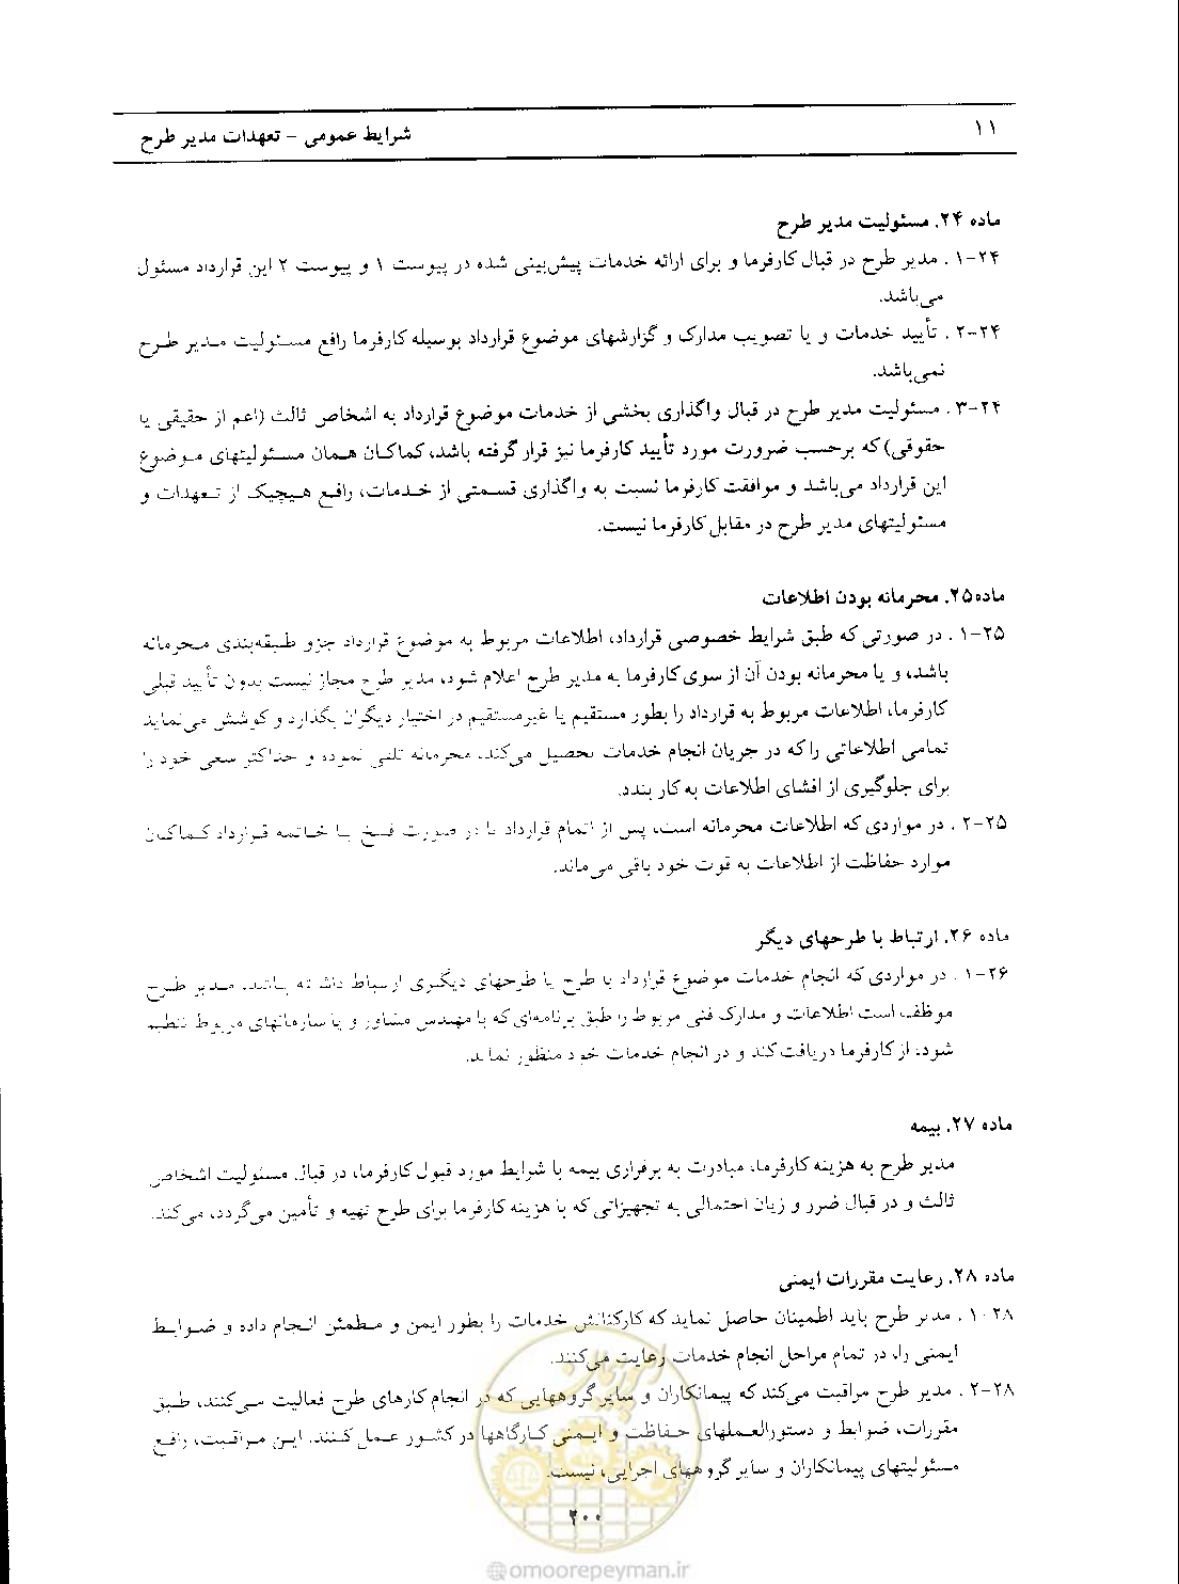 ۱۱
شرایط عمومی – تعهدات مدیر طرح
ماده ۲۴. مسئولیت مدیر طرح
۱-۲۴. مدیر طرح در قبال کارفرما و برای ارائه خدمات پیش‌بینی شده در پیوست ۱ و پیوست ۲ این قرارداد مسئول
می‌باشد.
۲-۲۴. تأیید خدمات و یا تصویب مدارک و گزارشهای موضوع قرارداد بوسیله کارفرما رافع مسئولیت مدیر طرح
نمی‌باشد.
۳-۲۴. مسئولیت مدیر طرح در قبال واگذاری بخشی از خدمات موضوع قرارداد به اشخاص ثالث (اعم از حقیقی یا
حقوقی) که برحسب ضرورت مورد تأیید کارفرما نیز قرار گرفته باشد، کماکان همان مسئولیتهای موضوع
این قرارداد می‌باشد و موافقت کارفرما نسبت به واگذاری قسمتی از خدمات، رافع هیچیک از تعهدات و
مسئولیتهای مدیر طرح در مقابل کارفرما نیست.
ماده۲۵. محرمانه بودن اطلاعات
۱-۲۵. در صورتی که طبق شرایط خصوصی قرارداد، اطلاعات مربوط به موضوع قرارداد جزو طبقه‌بندی محرمانه
باشد، و یا محرمانه بودن آن از سوی کارفرما به مدیر طرح اعلام شود، مدیر طرح مجاز نیست بدون تأیید قبلی
کارفرما، اطلاعات مربوط به قرارداد را بطور مستقیم یا غیرمستقیم در اختیار دیگران بگذارد و کوشش می‌نماید
تمامی اطلاعاتی را که در جریان انجام خدمات تحصیل می‌کند، محرمانه تلقی نموده و حداکثر سعی خود را
برای جلوگیری از افشای اطلاعات به کار بندد.
۲-۲۵. در مواردی که اطلاعات محرمانه است، پس از اتمام قرارداد یا در صورت فسخ یا خاتمه قرارداد کماکان
موارد حفاظت از اطلاعات به قوت خود باقی می‌ماند.
ماده ۲۶. ارتباط با طرحهای دیگر
۱-۲۶. در مواردی که انجام خدمات موضوع قرارداد با طرح یا طرحهای دیگری ارتباط داشته باشد، مدیر طرح
موظف است اطلاعات و مدارک فنی مربوط را طبق برنامه‌ای که با مهندس مشاور و یا سازمانهای مربوط تنظیم
شود، از کارفرما دریافت کند و در انجام خدمات خود منظور نماید.
ماده ۲۷. بیمه
مدیر طرح به هزینه کارفرما، مبادرت به برقراری بیمه با شرایط مورد قبول کارفرما، در قبال مسئولیت اشخاص
ثالث و در قبال ضرر و زیان احتمالی به تجهیزاتی که با هزینه کارفرما برای طرح تهیه و تأمین می‌گردد، می‌کند.
ماده ۲۸. رعایت مقررات ایمنی
۱-۲۸. مدیر طرح باید اطمینان حاصل نماید که کارکنانش خدمات را بطور ایمن و مطمئن انجام داده و ضوابط
ایمنی را، در تمام مراحل انجام خدمات رعایت می‌کنند.
۲-۲۸. مدیر طرح مراقبت می‌کند که پیمانکاران و سایر گروههایی که در انجام کارهای طرح فعالیت می‌کنند، طبق
مقررات، ضوابط و دستورالعملهای حفاظت و ایمنی کارگاهها در کشور عمل کنند. این مراقبت، رافع
مسئولیتهای پیمانکاران و سایر گروههای اجرایی، نیست.
۲۰۰
@omoorepeyman.ir